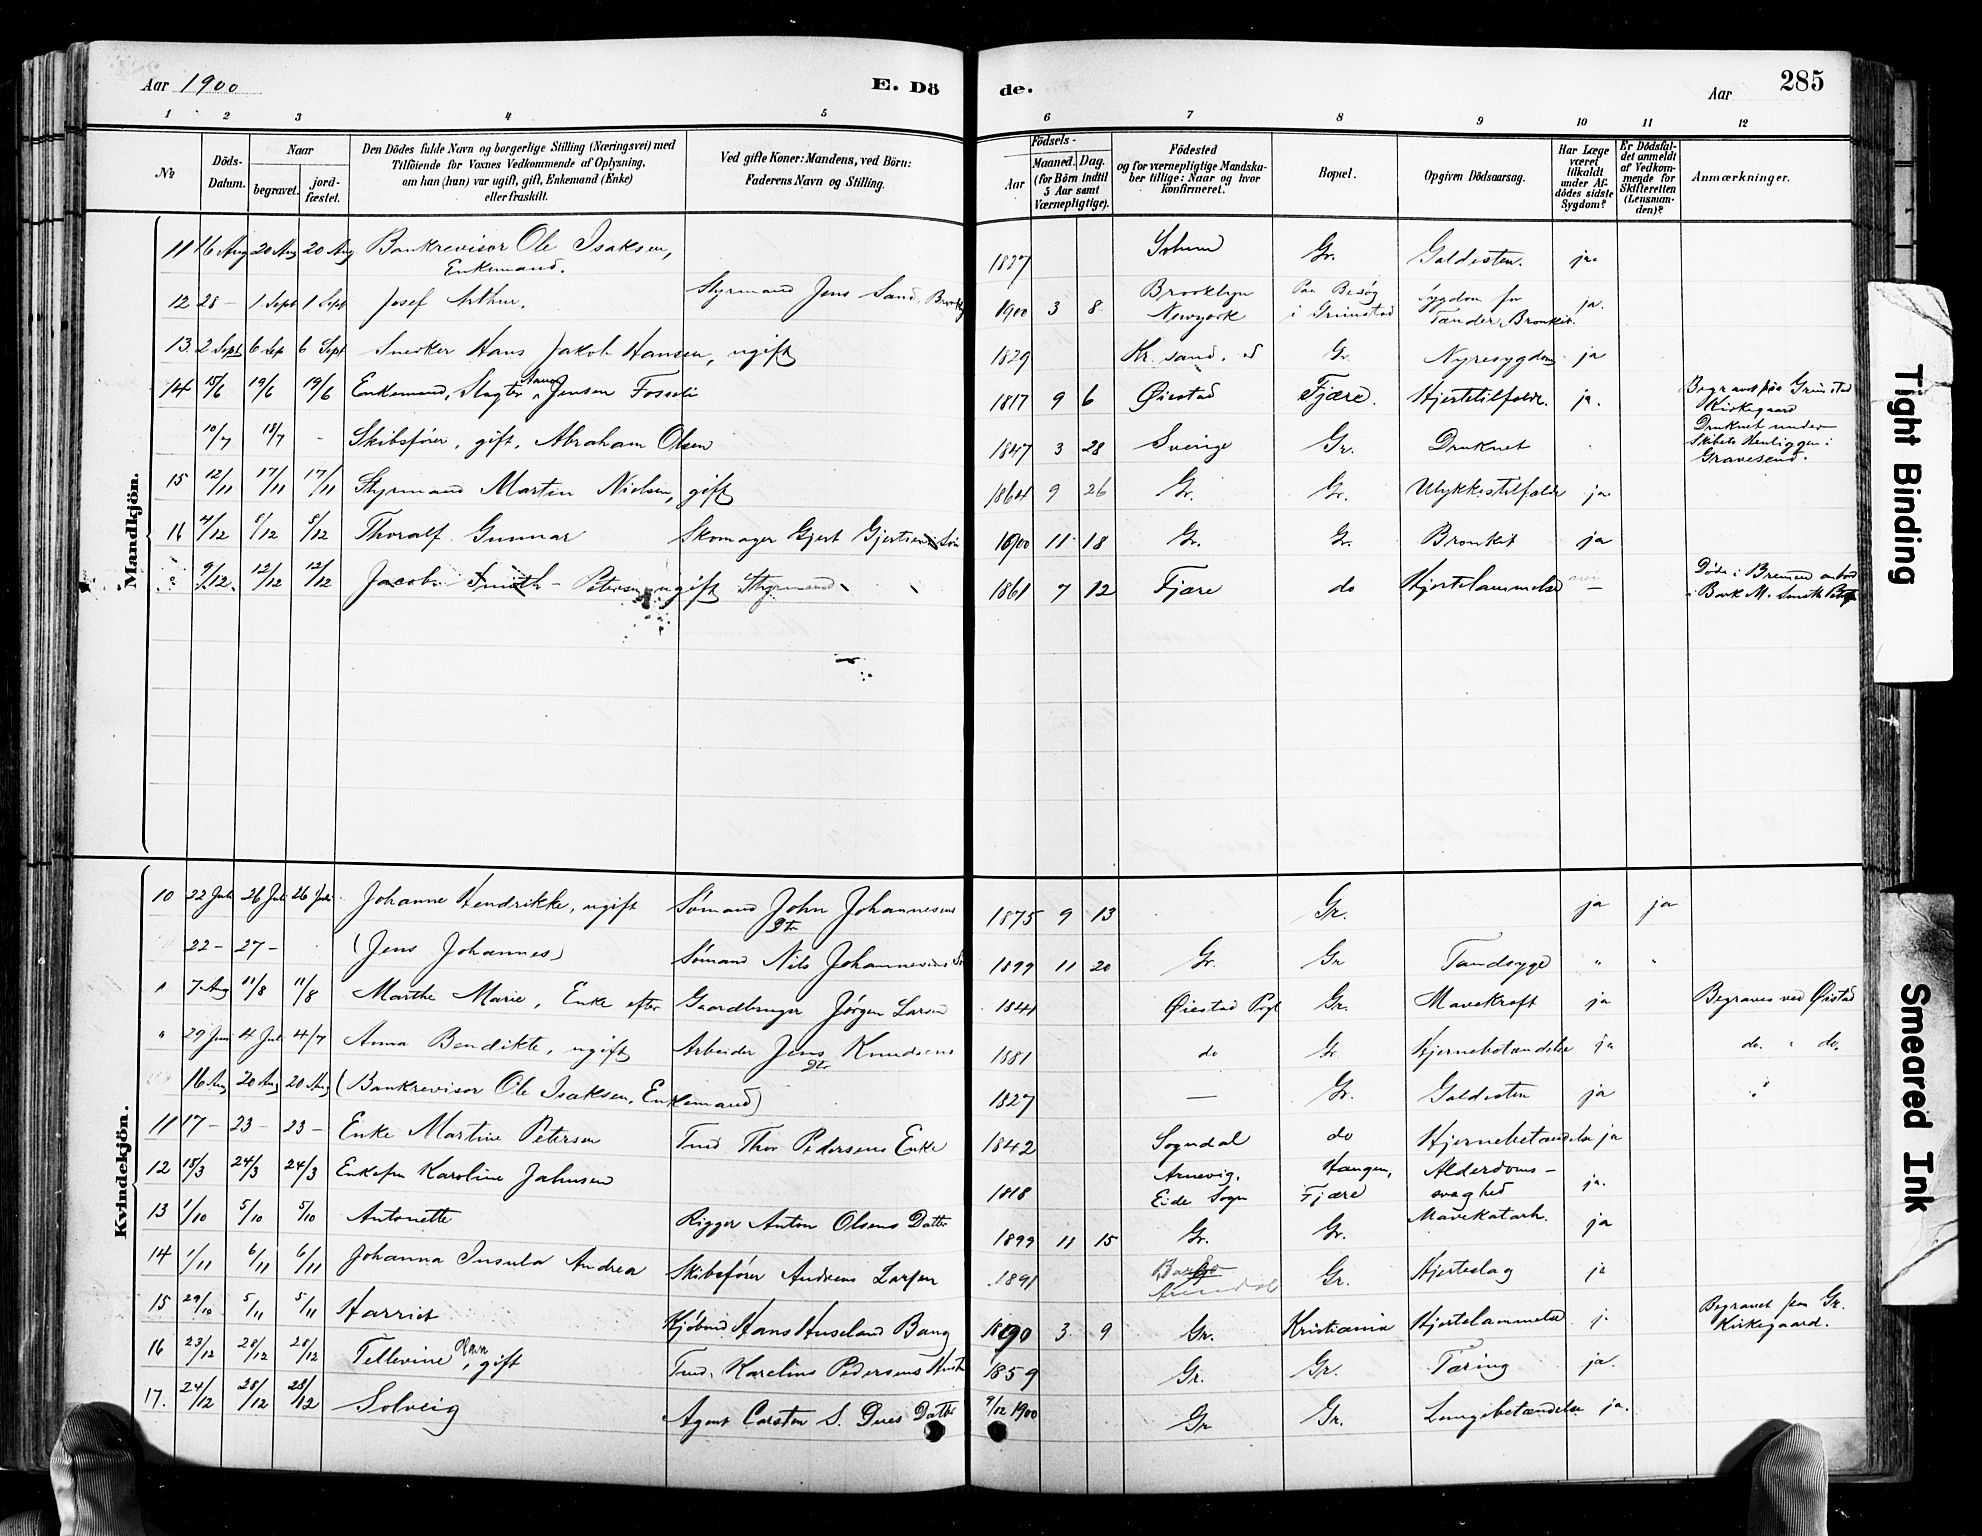 Aar 1900 E. Dö de. Aar 285
1 2 3 4 5 6 7 8 9 10 11 12
№
Döds-Datum.
Naar
begravet.
jord-fæstet.
Den Dödes fulde Navn og borgerlige Stilling (Næringsvei) med
Tilföiende for Voxnes Vedkommende af Oplysning,
om han (hun) var ugift, gift, Enkemand (Enke)
eller fraskilt.
Ved gifte Koner: Mandens, ved Börn:
Faderens Navn og Stilling.
Födsels-
Aar
Maaned. Dag.
(for Börn indtil
5 Aar samt
Værnepligtige).
Födested
og for værnepligtige Mandska-
ber tillige: Naar og hvor
konfirmeret.
Bopæl.
Opgiven Dödsaarsag.
Har Læge
været
tilkaldt
under Af-
dödes sidste
Sygdom?
Er Dödsfal-
det anmeldt
af Vedkom-
mende for
Skifteretten
(Lensman-
den)?
Anmærkninger.
Mandkjön.
11 16 Aug 20 Aug 20 Aug Bankrevisor Ole Isaksen, Enkemand. 1827 Gr. Galdesten. ja
12 28 - 1 Sept 1 Sept Josef Arthur. Styrmand Jens Sand, 1900 3 8 Brooklyn Newyork Paa Besøg i Grimstad Sygdom for Tænder, Bronkit. ja.
13. 2 Sept 6 Sep 6 Sept Snedker Hans Jakob Hansen, ugift 1829 Kr. sand. Gr. Nyresygdom ja
14 15/6 19/6 19/6 Enkemand, Slagter Jensen Fosseli 1817 9 6 Øiestad Fjære. Hjertetilfælde. ja. Begravet paa Grimstad Kirkegaard
10/7 18/7 - Skibsfører, gift, Abraham Olsen 1847 3 28 Sverige Gr. Druknet Druknet under Skibets Henliggen i Gravesend.
15 12/11 17/11 17/11 Styrmand Martin Nielsen, gift 1864 9 26 Gr. Gr. Ulykkestilfælde ja
16 4/12 5/12 5/12 Thoralf Gunnar Skomager Gjert Gjertsens Søn 1900 11 18 Gr. Gr. Bronkit ja
9/12. 12/12 12/12 Jacob Smith-Petersen ugift Styrmand 1861 7 12 Fjære do Hjertelammelse - Døde i Bremen ombord i Bark M. Smith
Kvindekjön.
10 22 Juli 26 Juli 26 Juli Johanne Hendrikke, ugift Sømand John Johannesens Dtr 1875 9 13 Gr. ja ja
22 - 27 - (Jens Johannes) Sømand Nils Johannesens 1899 11 20 Gr. Gr Tandsyge " "
" 7 Aug 11/8 11/8 Marthe Marie, Enke efter Gaardbruger Jørgen Larsen 1841 Øiestad Pgl Gr. Mavekræft ja Begraves ved Øistad
" 29 Juni 4 Juli 4/7 Anna Bendikte, ugift Arbeider Jens Knudsens Dtr 1881 do Gr. Hjernebetændelse ja do. " do.
16 Aug 20 Aug 20 Aug (Bankrevisor Ole Isaksen, Enkemand) 1827 — Gr. Galdesten ja "
11 17 - 23 - 23 - Enke Martine Petersen Tmd Thor Pedersens Enke 1842 Sogndal do Hjernebetændelse ja
12 18/3 24/3 24/3 Enkefru Karoline Jahnsen 1818 Arnevig, Eide Sogn Haugen, Fjære Alderdoms-svaghed ja.
13 1/10 5/10 5/10 Antonette Rigger Anton Olsens Datter 1899 11 15 Gr. Gr. Mavekatarh. ja
14 1/11 6/11 6/11 Johanna Insula Andrea Skibsfører Andreas Larsen 1891 Arendal Gr. Hjerteslag ja
15 29/10 5/11 5/11 Harriet Kjøbmd Hans Huseland Bang 1890 3 9 Gr. Kristiania Hjertelammelse j. Begravet paa Gr. Kirkegaard.
16 23/12 28/12 28/12 Tellevine Olava, gift Tmd. Karelius Pedersens Hustru 1859 Gr. Gr. Tæring ja.
17. 24/12 28/12 28/12 Solveig Agent Carsten S. Dues Datter 9/12 1900 Gr Gr. Lungebetændelse ja.
Tight Binding
Smeared Ink